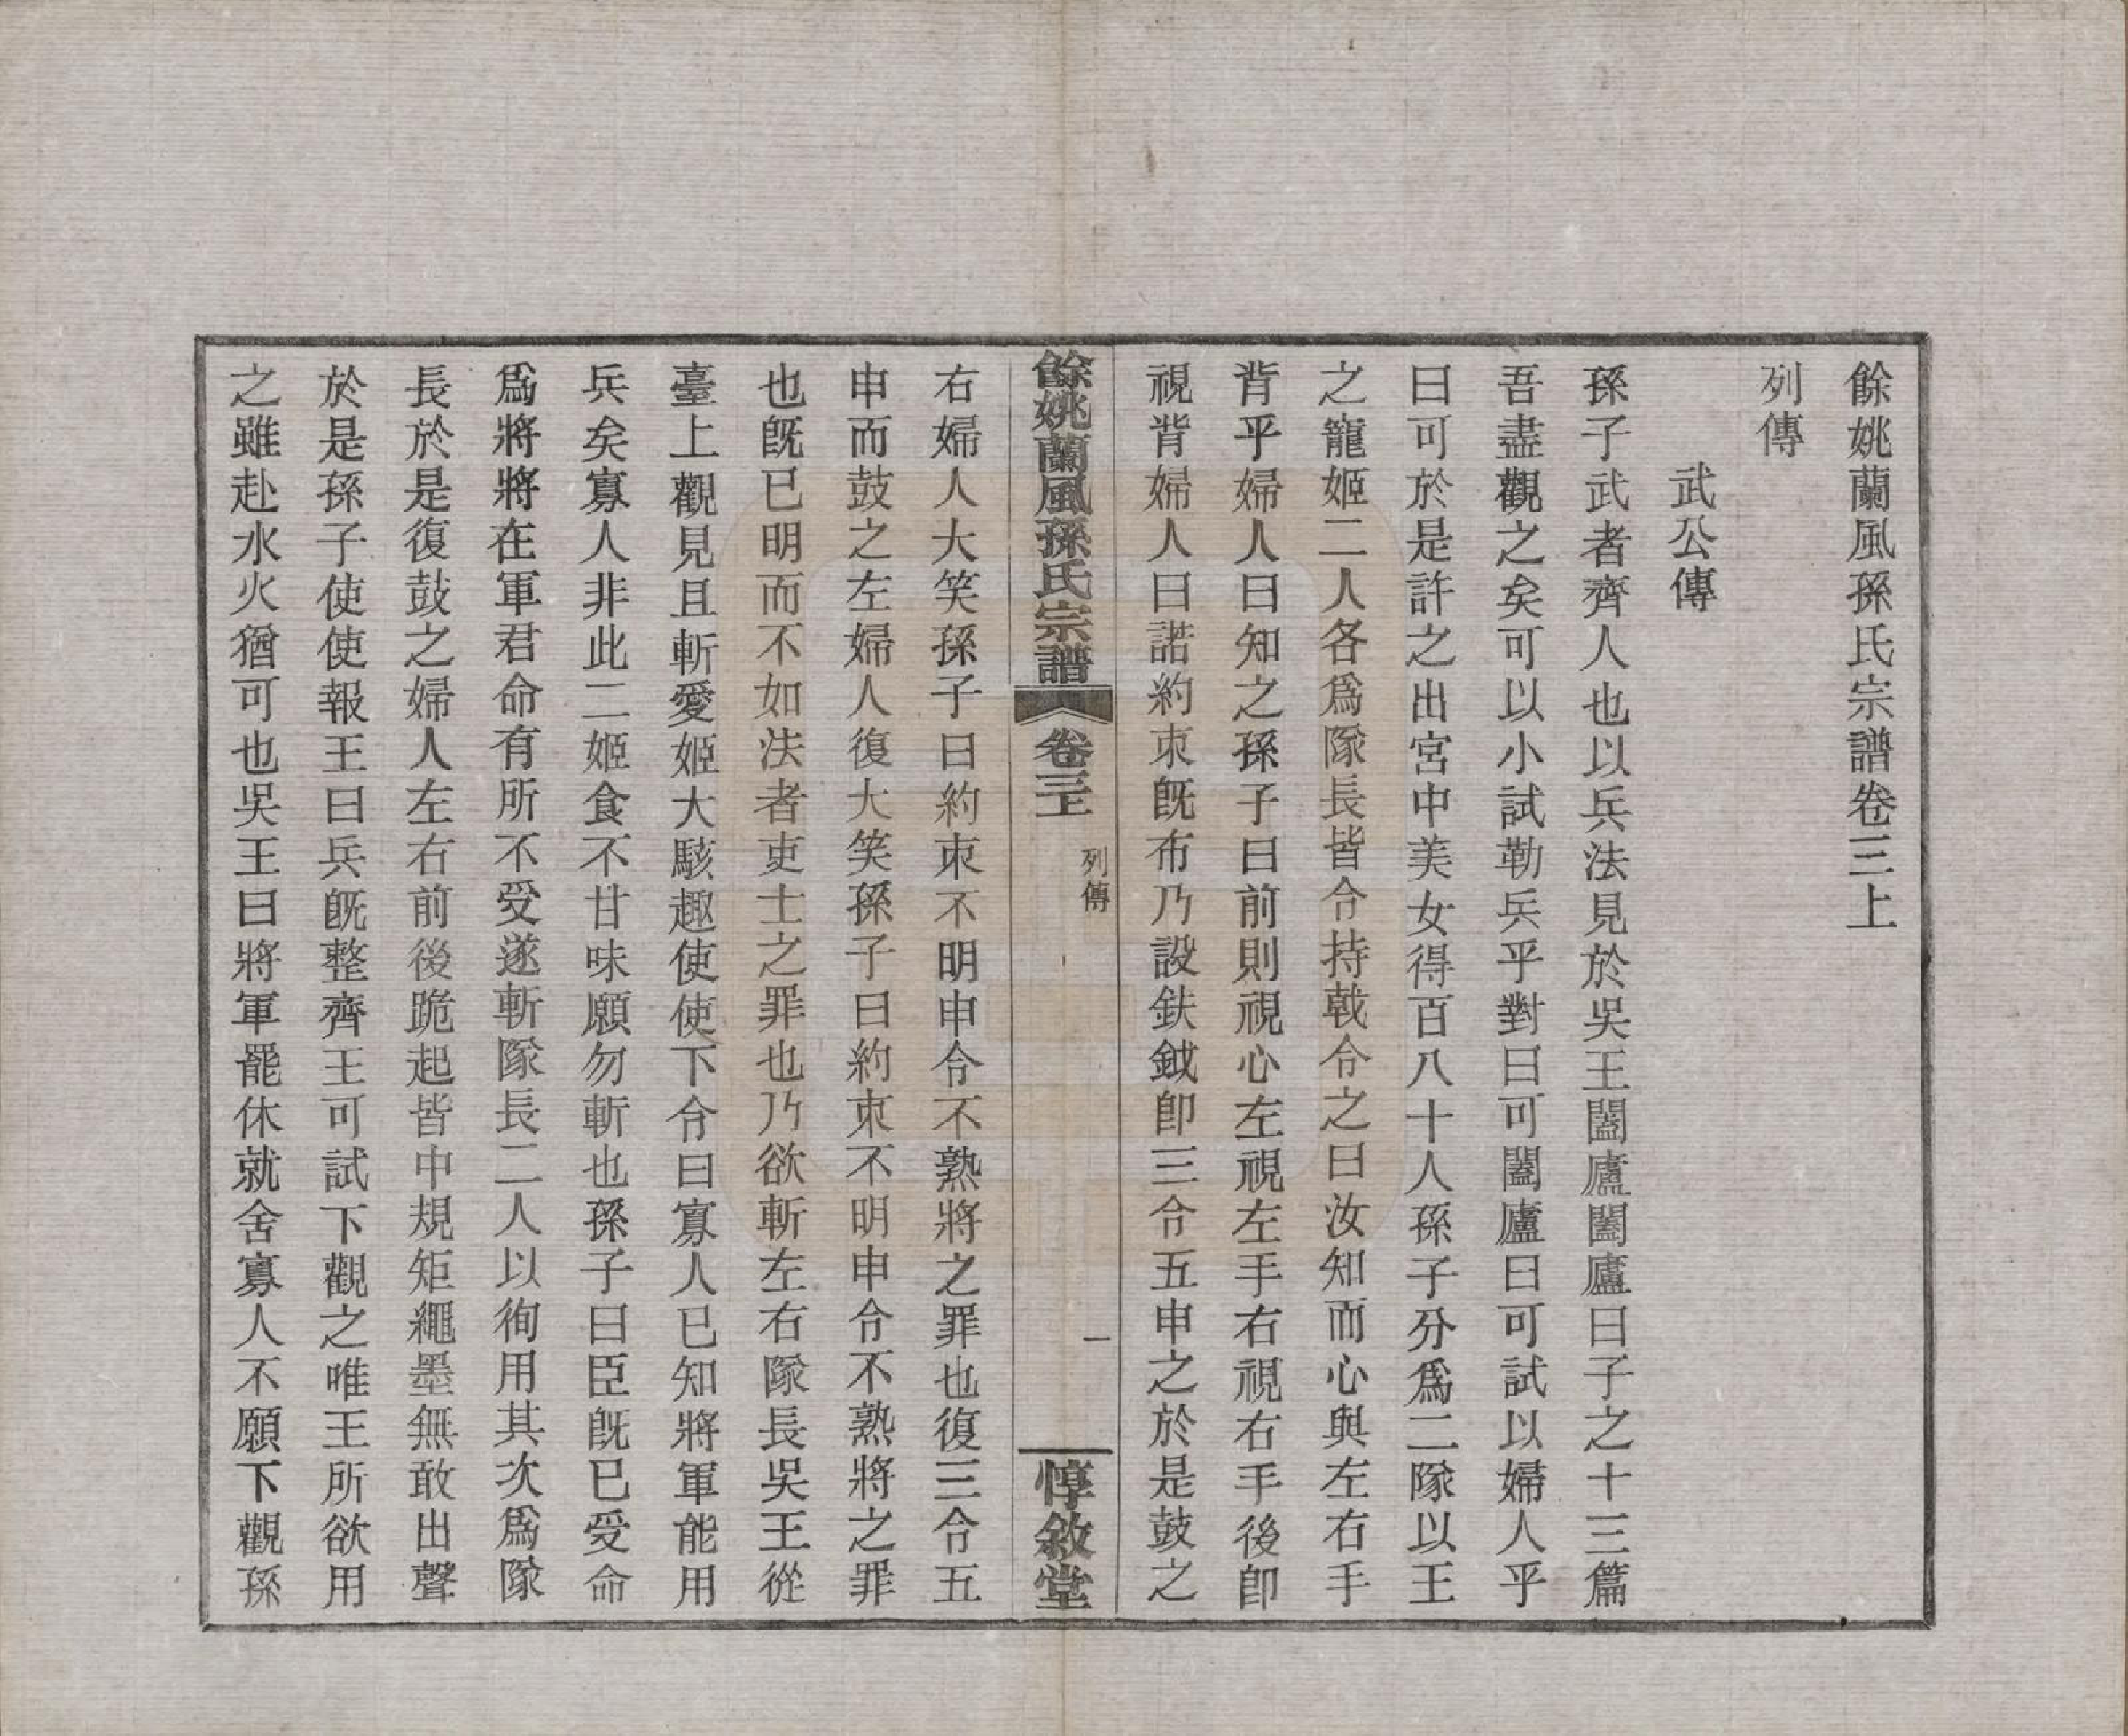 餘姚蘭風孫氏宗譜卷三上
列傳
武公傳
孫子武者齊人也以兵法見於吳王闔廬闔廬曰子之十三篇
吾盡觀之矣可以小試勒兵乎對曰可闔廬曰可試以婦人乎
曰可於是許之出宮中美女得百八十人孫子分爲二隊以王
之寵姬二人各爲隊長皆令持戟令之曰汝知而心與左右手
背乎婦人曰知之孫子曰前則視心左視左手右視右手後卽
視背婦人曰諾約束旣布乃設鈇鉞卽三令五申之於是鼓之
餘姚蘭風孫氏宗譜 卷三上 列傳 一 惇敘堂
右婦人大笑孫子曰約束不明申令不熟將之罪也復三令五
申而鼓之左婦人復大笑孫子曰約束不明申令不熟將之罪
也旣已明而不如法者吏士之罪也乃欲斬左右隊長吳王從
臺上觀見且斬愛姬大駭趣使使下令曰寡人已知將軍能用
兵矣寡人非此二姬食不甘味願勿斬也孫子曰臣旣已受命
爲將將在軍君命有所不受遂斬隊長二人以徇用其次爲隊
長於是復鼓之婦人左右前後跪起皆中規矩繩墨無敢出聲
於是孫子使使報王曰兵旣整齊王可試下觀之唯王所欲用
之雖赴水火猶可也吳王曰將軍罷休就舍寡人不願下觀孫